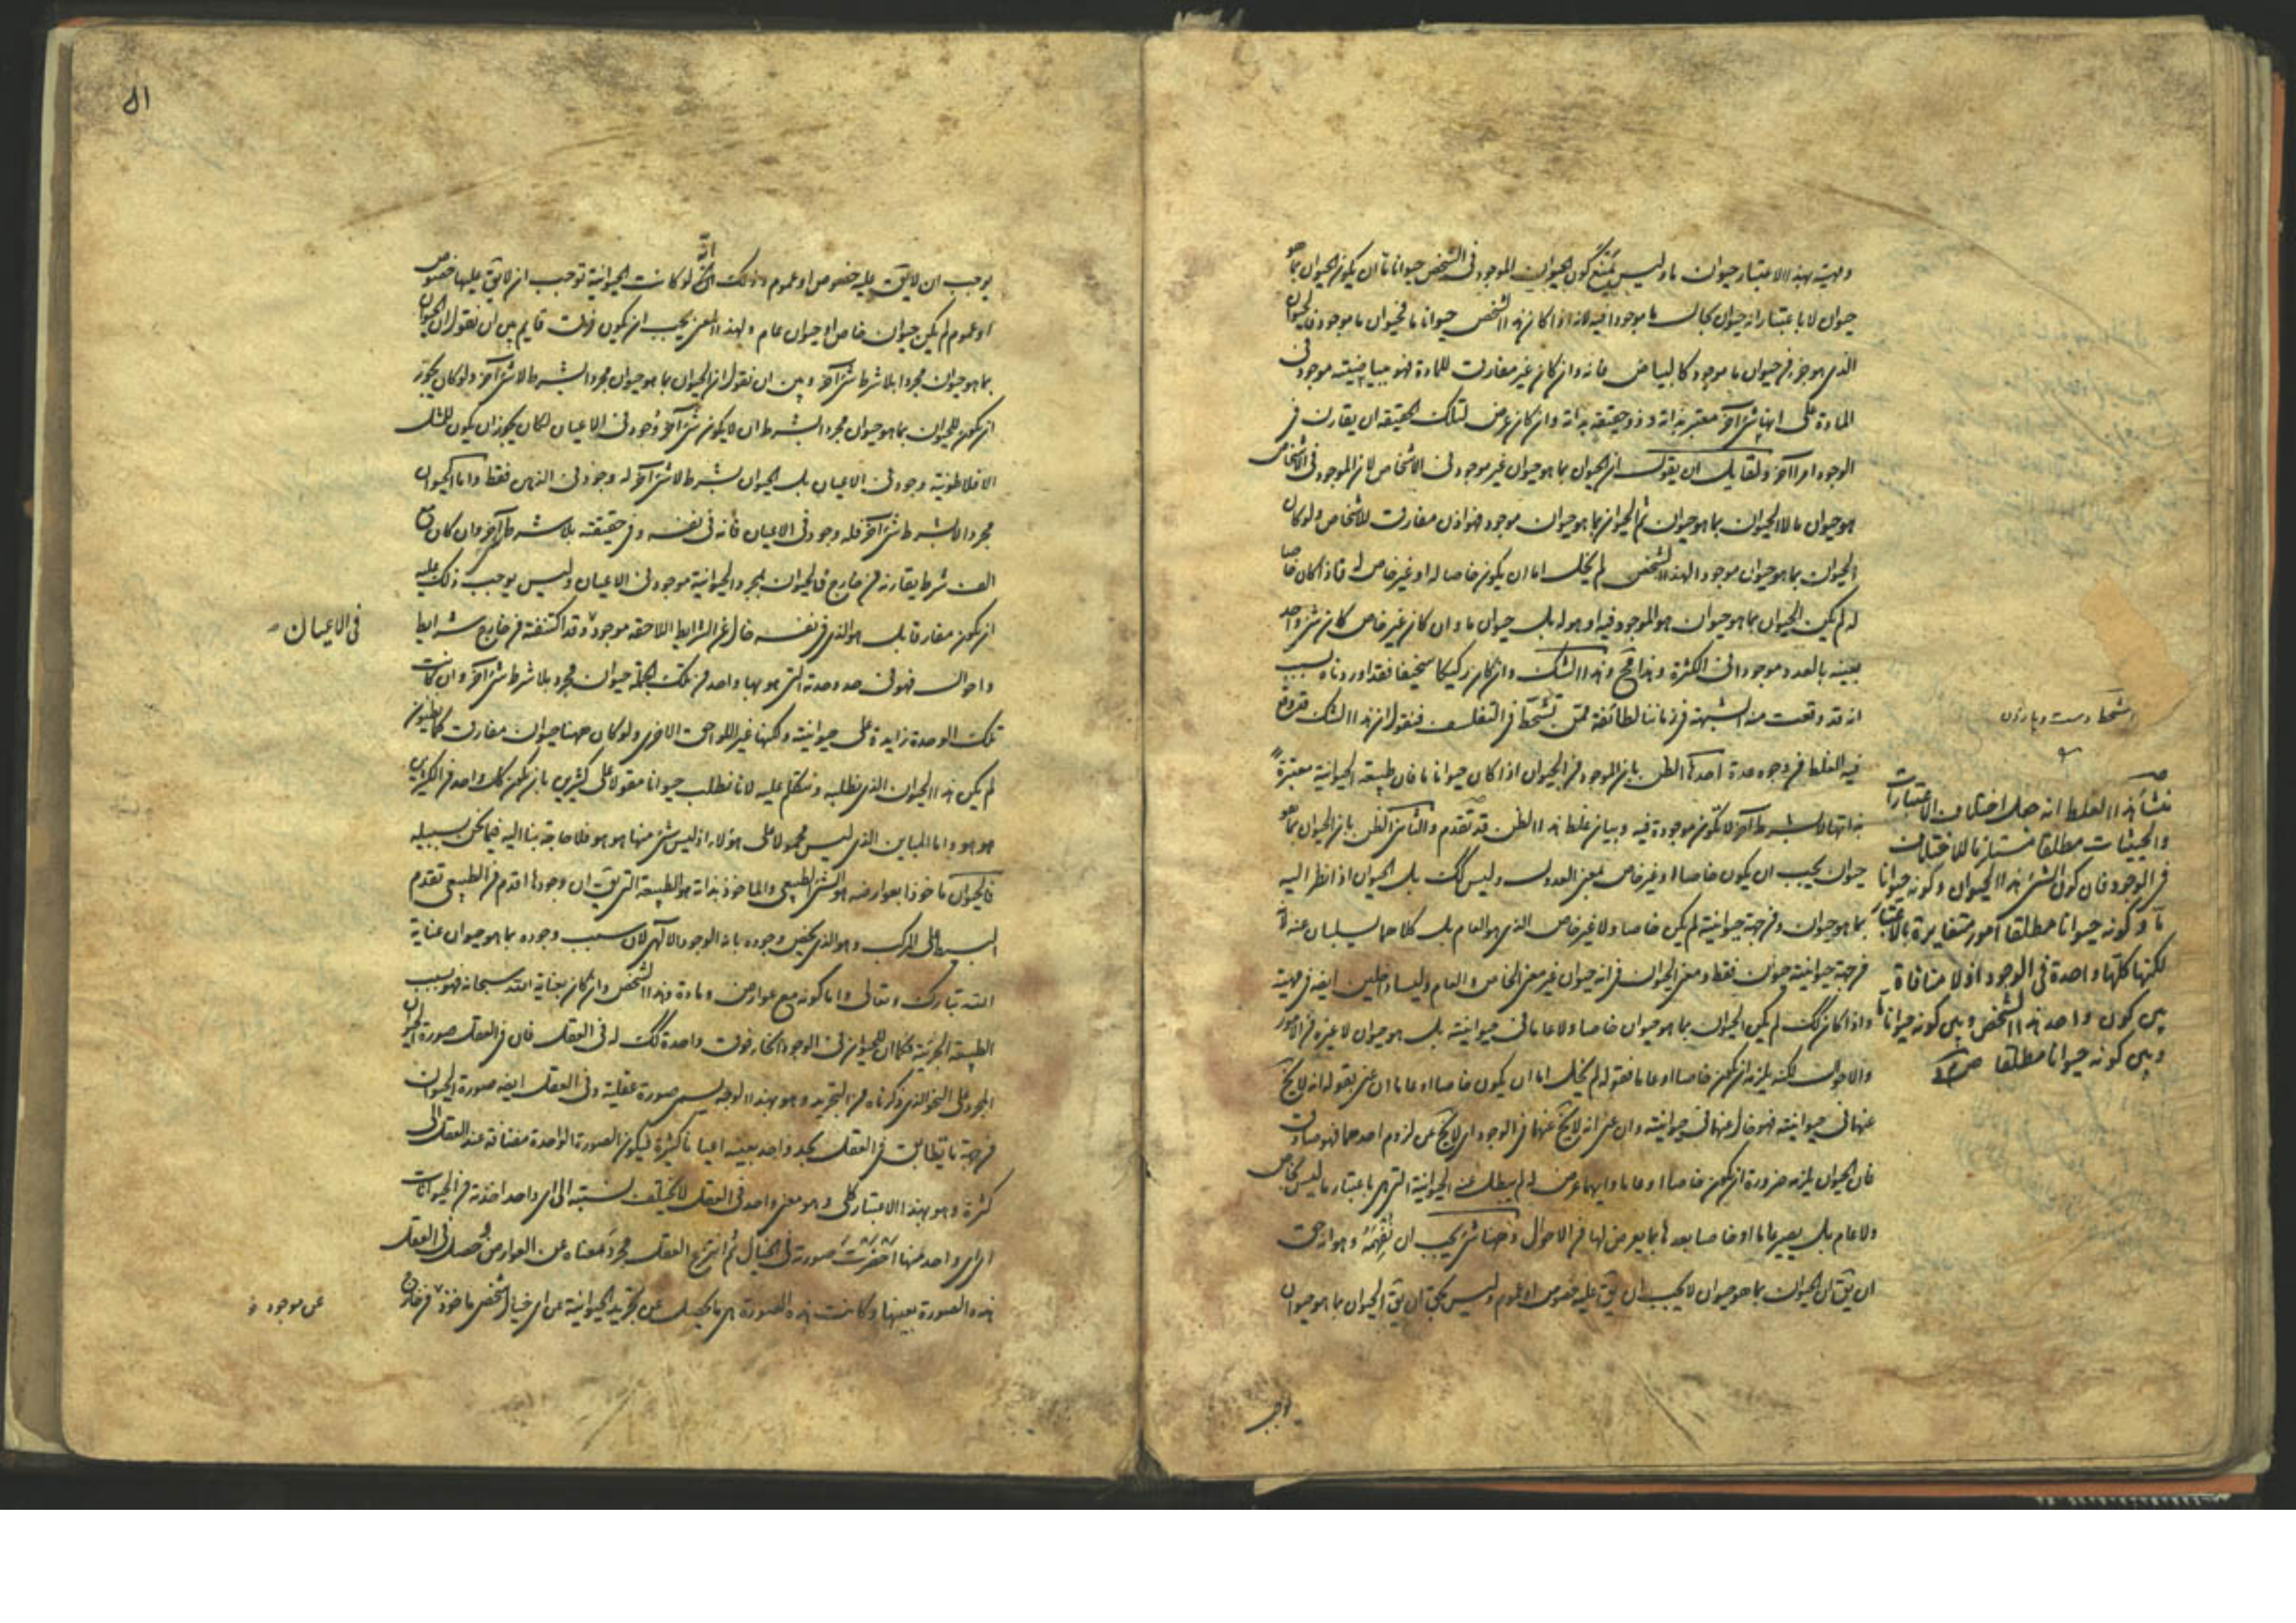 ومهيته بهذا الاعتبار حيوان ما وليس يمنع كون الحيوان الموجود فى الشخص حيوانا ما ان يكون الحيوان بما هو
حيوان لا باعتبار انه حيوان بحال ما موجودا فيه لانه اذا كان هذا الشخص حيوانا ما فحيوان ما موجود فالحيوان
الذى هو جزء من حيوان ما موجود كالبياض فانه وان كان غير مفارق للمادة فهو ببياضيته موجود فى
المادة على انها شئ آخر معتبر بذاته وذو حقيقة بذاته وان كان عرض لتلك الحقيقة ان يقارن فى
الوجود امرا آخر ولقايل ان يقول ان الحيوان بما هو حيوان غير موجود فى الاشخاص لان الموجود فى الاشخاص
هو حيوان ما لا الحيوان بما هو حيوان ثم الحيوان بما هو حيوان موجود فهو اذن مفارق للاشخاص ولو كان
الحيوان بما هو حيوان موجودا لهذا الشخص لم يخل اما ان يكون خاصا له او غير خاص له فاذا كان خاصا
له لم يكن الحيوان بما هو حيوان هو الموجود فيه او هو له بل حيوان ما وان كان غير خاص كان شئ واحد
بعينه بالعدد موجودا فى الكثرة وهذا مح وهذا الشك وان كان ركيكا سخيفا فقد اوردناه بسبب
انه قد وقعت منه الشبهة فى زماننا لطائفة ممن تشحط فى التفلسف فنقول ان هذا الشك قد وقع
فيه الغلط من وجوه عدة احدها الظن بان الموجود من الحيوان اذا كان حيوانا ما فان طبيعة الحيوانية معتبرة
بذاتها لا بشرط آخر لا تكون موجودة فيه وبيان غلط هذا الظن قد تقدم والثانى الظن بان الحيوان بما هو
حيوان يجب ان يكون خاصا او غير خاص بمعنى العدول وليس كك بل الحيوان اذا نظر اليه
بما هو حيوان ومن جهة حيوانيته لم يكن خاصا ولا غير خاص الذى هو العام بل كلاهما يسلبان عنه لانه
من جهة حيوانيته حيوان فقط ومعنى الحيوان فى انه حيوان غير معنى الخاص والعام وليسا داخلين ايضا فى مهيته
واذا كان كك لم يكن الحيوان بما هو حيوان خاصا ولا عاما فى حيوانيته بل هو حيوان لا غيره من الامور
والاحوال لكنه يلزمه ان يكون خاصا او عاما فقوله لم يخل اما ان يكون خاصا او عاما ان عنى بقوله انه لا يخ
عنهما فى حيوانيته فهو خال منهما فى حيوانيته وان عنى انه لا يخ عنهما فى الوجود اى لا يخ عن لزوم احدهما فهو صادق
فان الحيوان يلزمه ضرورة ان يكون خاصا او عاما وايهما عرض له لم يبطل عنه الحيوانية التى هى باعتبار ما ليس بخاص
ولا عام بل يصير عاما او خاصا بعدها بما يعرض لها من الاحوال وههنا شئ يجب ان تفهمه وهو انه حق
ان يق ان الحيوان بما هو حيوان لا يجب ان يق عليه خصوص او عموم وليس بحق ان يق الحيوان بما هو حيوان
تشحط دست و پا زدن
منشأ هذا الغلط انه جعل اختلاف الاعتبارات
والحيثيات مطلقا مستلزما للاختلاف
فى الوجود فان كون الشئ هذا الحيوان وكونه حيوانا
ما وكونه حيوانا مطلقا امور متغايرة بالاعتبار
لكنها كلها واحدة فى الوجود اذ لا منافاة
بين كون واحد هذا الشخص وبين كونه حيوانا ما
وبين كونه حيوانا مطلقا
يوجب ان لا يق عليه خصوص او عموم وذلك انه لو كانت الحيوانية توجب ان لا يق عليها خصوص
او عموم لم يكن حيوان خاص او حيوان عام ولهذا المعنى يجب ان يكون فرق قايم بين ان نقول ان الحيوان
بما هو حيوان مجردا بلا شرط شئ آخر وبين ان نقول ان الحيوان بما هو حيوان مجردا بشرط لا شئ آخر ولو كان يجوز
ان يكون للحيوان بما هو حيوان مجردا بشرط ان لا يكون شئ آخر وجود فى الاعيان لكان يجوز ان يكون للمثل
الافلاطونية وجود فى الاعيان بل الحيوان بشرط لا شئ آخر له وجود فى الذهن فقط واما الحيوان
مجردا لا بشرط شئ آخر فله وجود فى الاعيان فانه فى نفسه وفى حقيقته بلا شرط آخر وان كان مع
الف شرط يقارنه من خارج فالحيوان بمجرد الحيوانية موجود فى الاعيان وليس يوجب ذلك عليه
ان يكون مفارقا بل هو الذى فى نفسه خال عن الشرايط اللاحقة موجود وقد اكتنفته من خارج شرايط
فى الاعيان
واحوال فهو فى حد وحدته التى هو بها واحد من تلك الجملة حيوان مجرد بلا شرط شئ آخر وان كانت
تلك الوحدة زايدة على حيوانيته ولكنها غير اللواحق الاخرى ولو كان ههنا حيوان مفارق كما يظنون
لم يكن هذا الحيوان الذى نطلبه ونتكلم عليه لانا نطلب حيوانا مقولا على كثيرين بان يكون كل واحد من الكثيرين
هو هو واما المباين الذى ليس محمولا على هؤلاء اذ ليس شئ منها هو هو فلا حاجة بنا اليه فيما نحن بسبيله
فالحيوان ماخوذا بعوارضه هو الشئ الطبيعى والماخوذ بذاته هو الطبيعة التى يق ان وجودها اقدم من الطبيعى تقدم
البسيط على المركب وهو الذى يخص وجوده بانه الوجود الالهى لان سبب وجوده بما هو حيوان عناية
الله تبارك وتعالى واما كونه مع عوارض ومادة وهذا الشخص وان كان بعناية الله سبحانه فهو بسبب
الطبيعة الجزئية فكما ان للحيوان فى الوجود انحاء فوق واحدة كك له فى العقل فان فى العقل صورة الحيوان
المجرد على النحو الذى ذكرناه من التجريد وهو بهذا الوجه يسمى صورة عقلية وفى العقل ايضا صورة الحيوان
من جهة ما يطابق فى العقل بحد واحد بعينه اعيانا كثيرة فيكون الصورة الواحدة مضافة عند العقل الى
كثرة وهو بهذا الاعتبار كلى وهو معنى واحد فى العقل لا يختلف نسبته الى اى واحد اخذته من الحيوانات
اى اى واحد منها احضرت صورته فى الخيال ثم انتزع العقل مجرد معناه عن العوارض حصل فى العقل
هذه الصورة بعينها وكانت هذه الصورة هى ما يحصل عن تجريد الحيوانية عن اى خيال شخصى ماخوذ من خارج
عن موجود